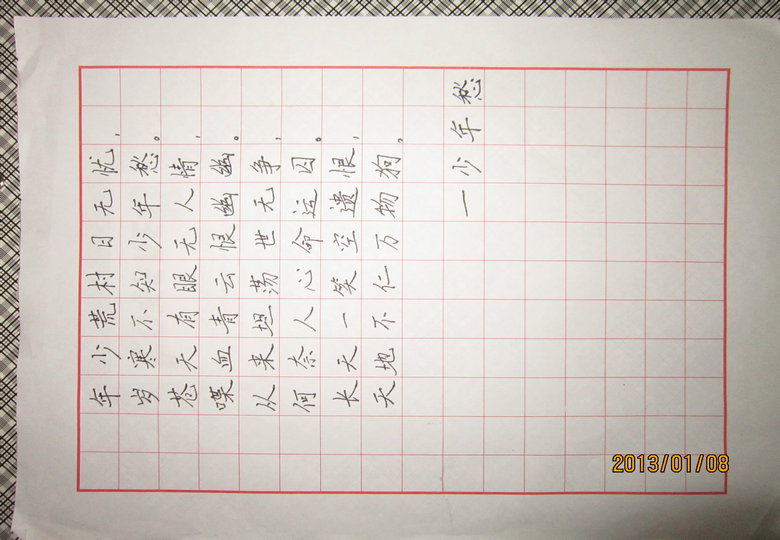 年少荒村日无忧，
岁寒不知少年愁。
苍天有眼无人情，
喋血青云恨幽幽。
从来坦荡世无争，
何奈人心命运囚。
长天一笑空遗恨，
天地不仁万物狗，
一少年愁
2013/01/08